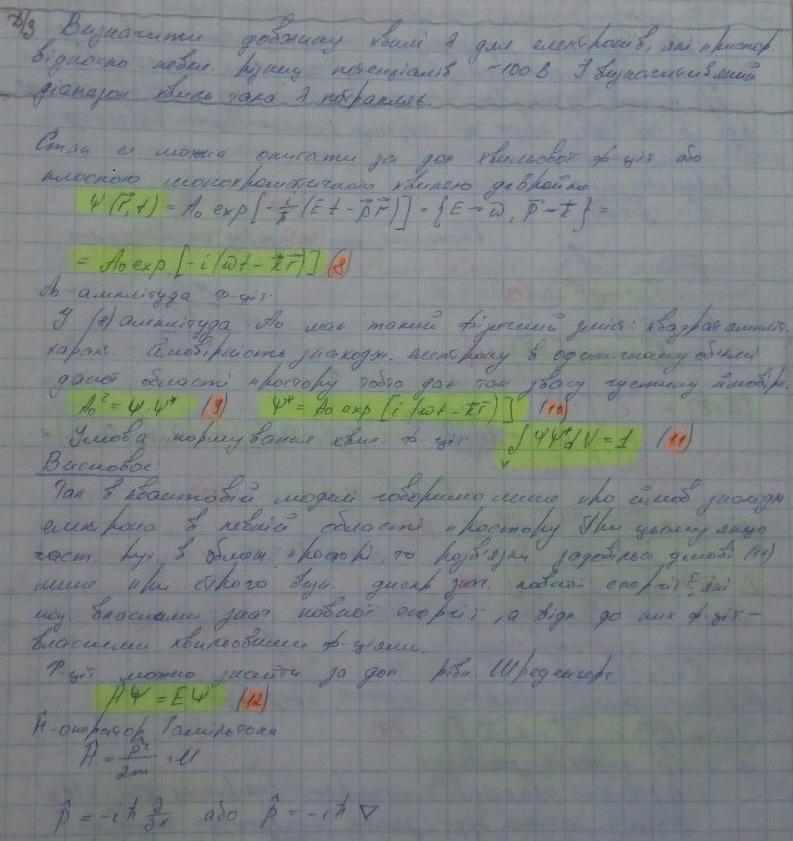 Д/З Визначити довжину хвилі λ для електронів, які прискор.
відносно невел. різниц. потенціалів ~100 В І визначити в який
діапазон хвиль така λ потрапляє.
Стан ел можна описати за доп хвильової ф-ції або
плоскою монохроматичною хвилею де Бройля
Ψ(r⃗,t) = A₀ exp[-i/ħ (Et - p⃗r⃗)] = {E→ω, p⃗→k⃗} =
= A₀ exp[-i(ωt - k⃗r⃗)] (8)
A₀-амплітуда ф-ції
У (8) амплітуда A₀ має такий фізичний зміст: квадрат ампліт.
характ. ймовірність знаходж. електрону в одиничному об'ємі
даної області простору тобто дає так звану густину ймовірн.
A₀² = Ψ·Ψ* (9) Ψ* = A₀ exp[i(ωt - k⃗r⃗)] (10)
Умова нормування хвил. ф-ції ∫ΨΨ*dV = 1 (11)
V
Висновок:
Так в квантовій моделі говоримо лише про ймов знаходж
електрона в певній області простору При цьому якщо
част. рух. в обмеж. просторі, то розв'язки задовільн умові (11)
лише при строго визн дискр знач. повної енергії E, які
наз. власними знач повної енергії, а відп. до них ф-ції –
власними хвильовими ф-ціями.
Ф-ції можна знайти за доп. рівн. Шредінгера
ĤΨ = EΨ (12)
Ĥ-оператор Гамільтона
Ĥ = p̂²/2m + U
p̂ = -iħ ∂/∂x або p̂ = -iħ ∇